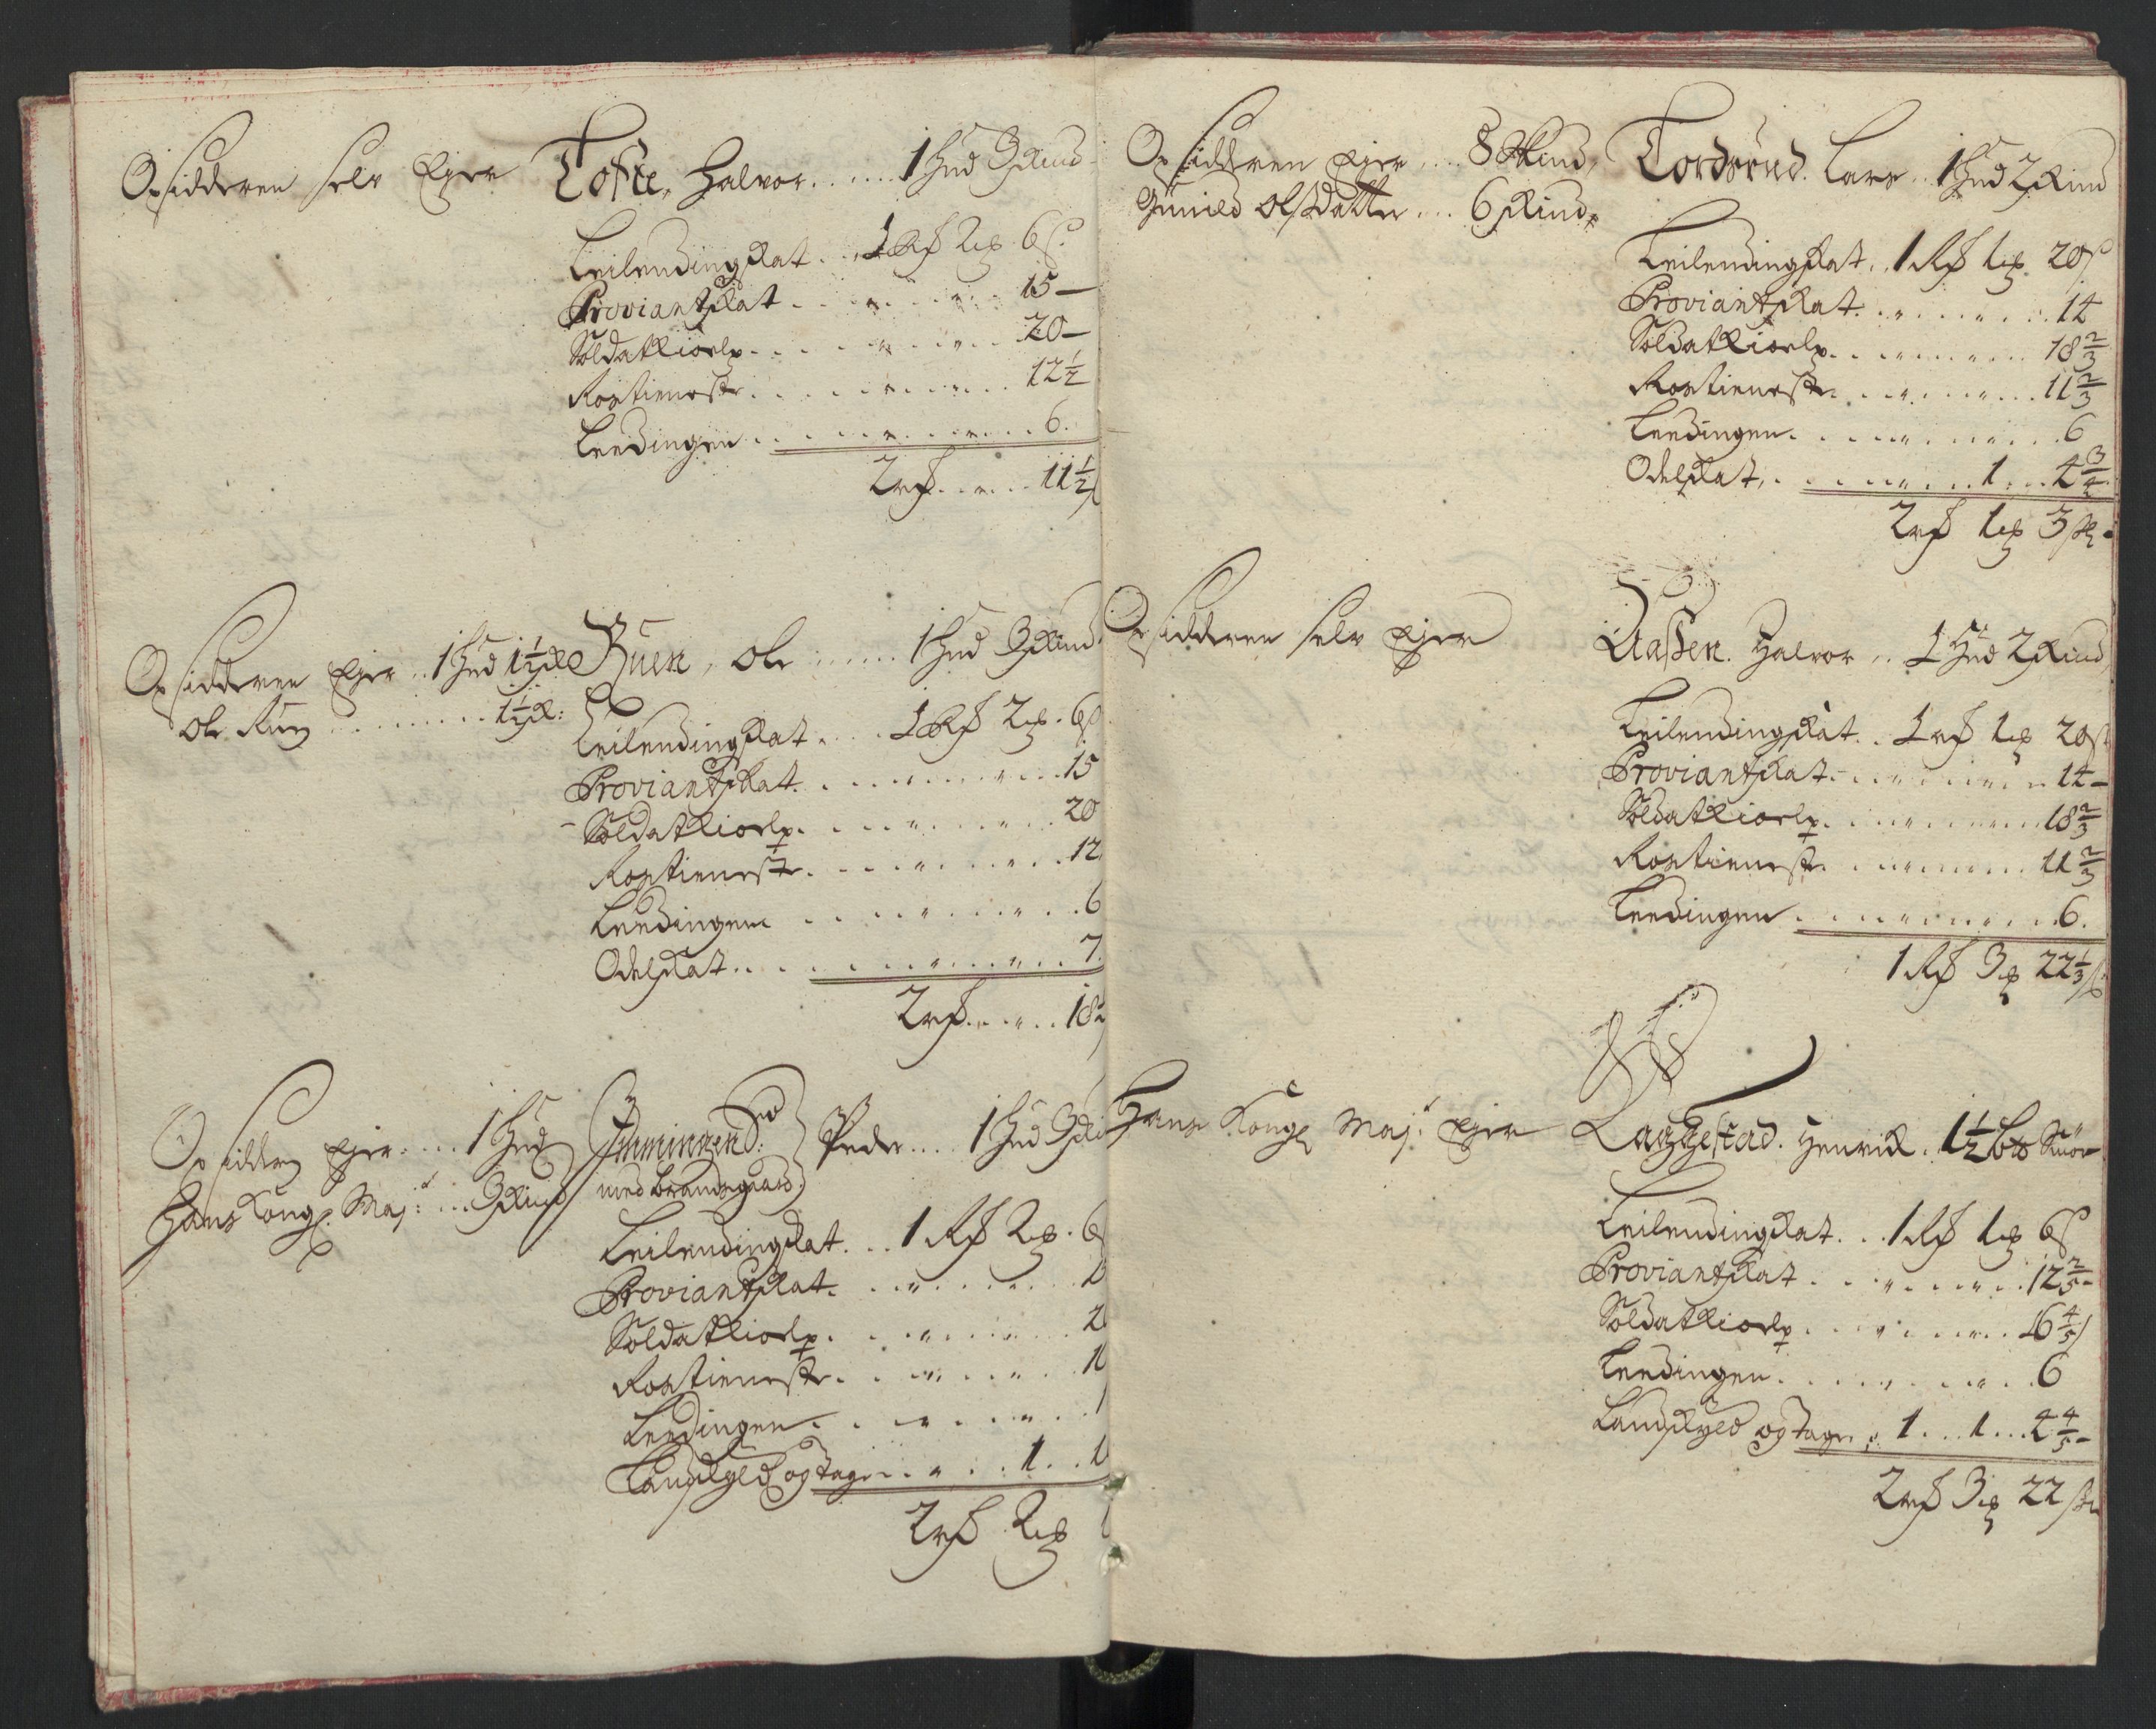 Opsidderen selv Ejer Tofte, Halvor ..... 1 Hud 3 skind
Leilendingskat .. 1 Rd 2 ort 6 s.
Proviantskat ....... 15 —
Soldattkiorlp ....... 20 —
Rostieneste ....... 12 1/2
Leedingen ....... 6.
2 rd ..... 11 1/2 s
Opsidderen Ejer .. 1 Hud 1 1/2 sk Ruen, Ole ..... 1 Hud 3 skind
Ole Ruen ....... 1 1/2 sk:
Leilendingskat .... 1 Rd 2 ort. 6 s
Proviantskat ....... 15
Soldatkiorlp ....... 20
Rostieneste ....... 12
Leedingen ....... 6
Odelskat ....... 7.
2 rd ..... 18
Opsidderen Ejer .... 1 Hud Peder .... 1 Hud 3 sk
Hans Kongl. Maj:t ... 3 skind med Brandsgaard
Leilendingskat ... 1 Rd 2 ort. 6 s
Proviantskat ....... 1
Soldatkiorlp ....... 2
Rostieneste ....... 1
Leedingen .......
Landskyld og tage ...... 1 .. 1
2 rd 2 ort
Opsidderen Ejer .... 8 skind, Tordsrud. Lars .. 1 Hud 2 skind
Gunild Olsdatter ... 6 skind,
Leilendingskat .. 1 Rd 1 ort 20 s
Proviantskat ....... 14
Soldatkiorlp ....... 18 2/3
Rostieneste ....... 11 2/3
Leedingen ....... 6
Odelskat ....... 1 ... 4 3/4
2 rd 1 ort 3 sk.
Opsidderen selv Ejer Aassen. Halvor .. 1 Hud 2 skind
Leilendingskat .. 1 rd 1 ort 20 s
Proviantskat ....... 14 —
Soldatkiorlp ....... 18 2/3
Rostieneste ....... 11 2/3
Leedingen ....... 6.
1 Rd 3 ort 22 1/3 s
Hans Kongl Maj:t Ejer Laggestad. Henrik. 1 1/2 Smör
Leilendingskat ... 1 Rd 1 ort 6 s
Proviantskat ....... 12 2/5 —
Soldatkiorlp ....... 16 4/5 s
Leedingen ....... 6
Landskyld og tage .. 1 ... 1 ... 4 4/5 —
2 rd 3 ort 22 sk